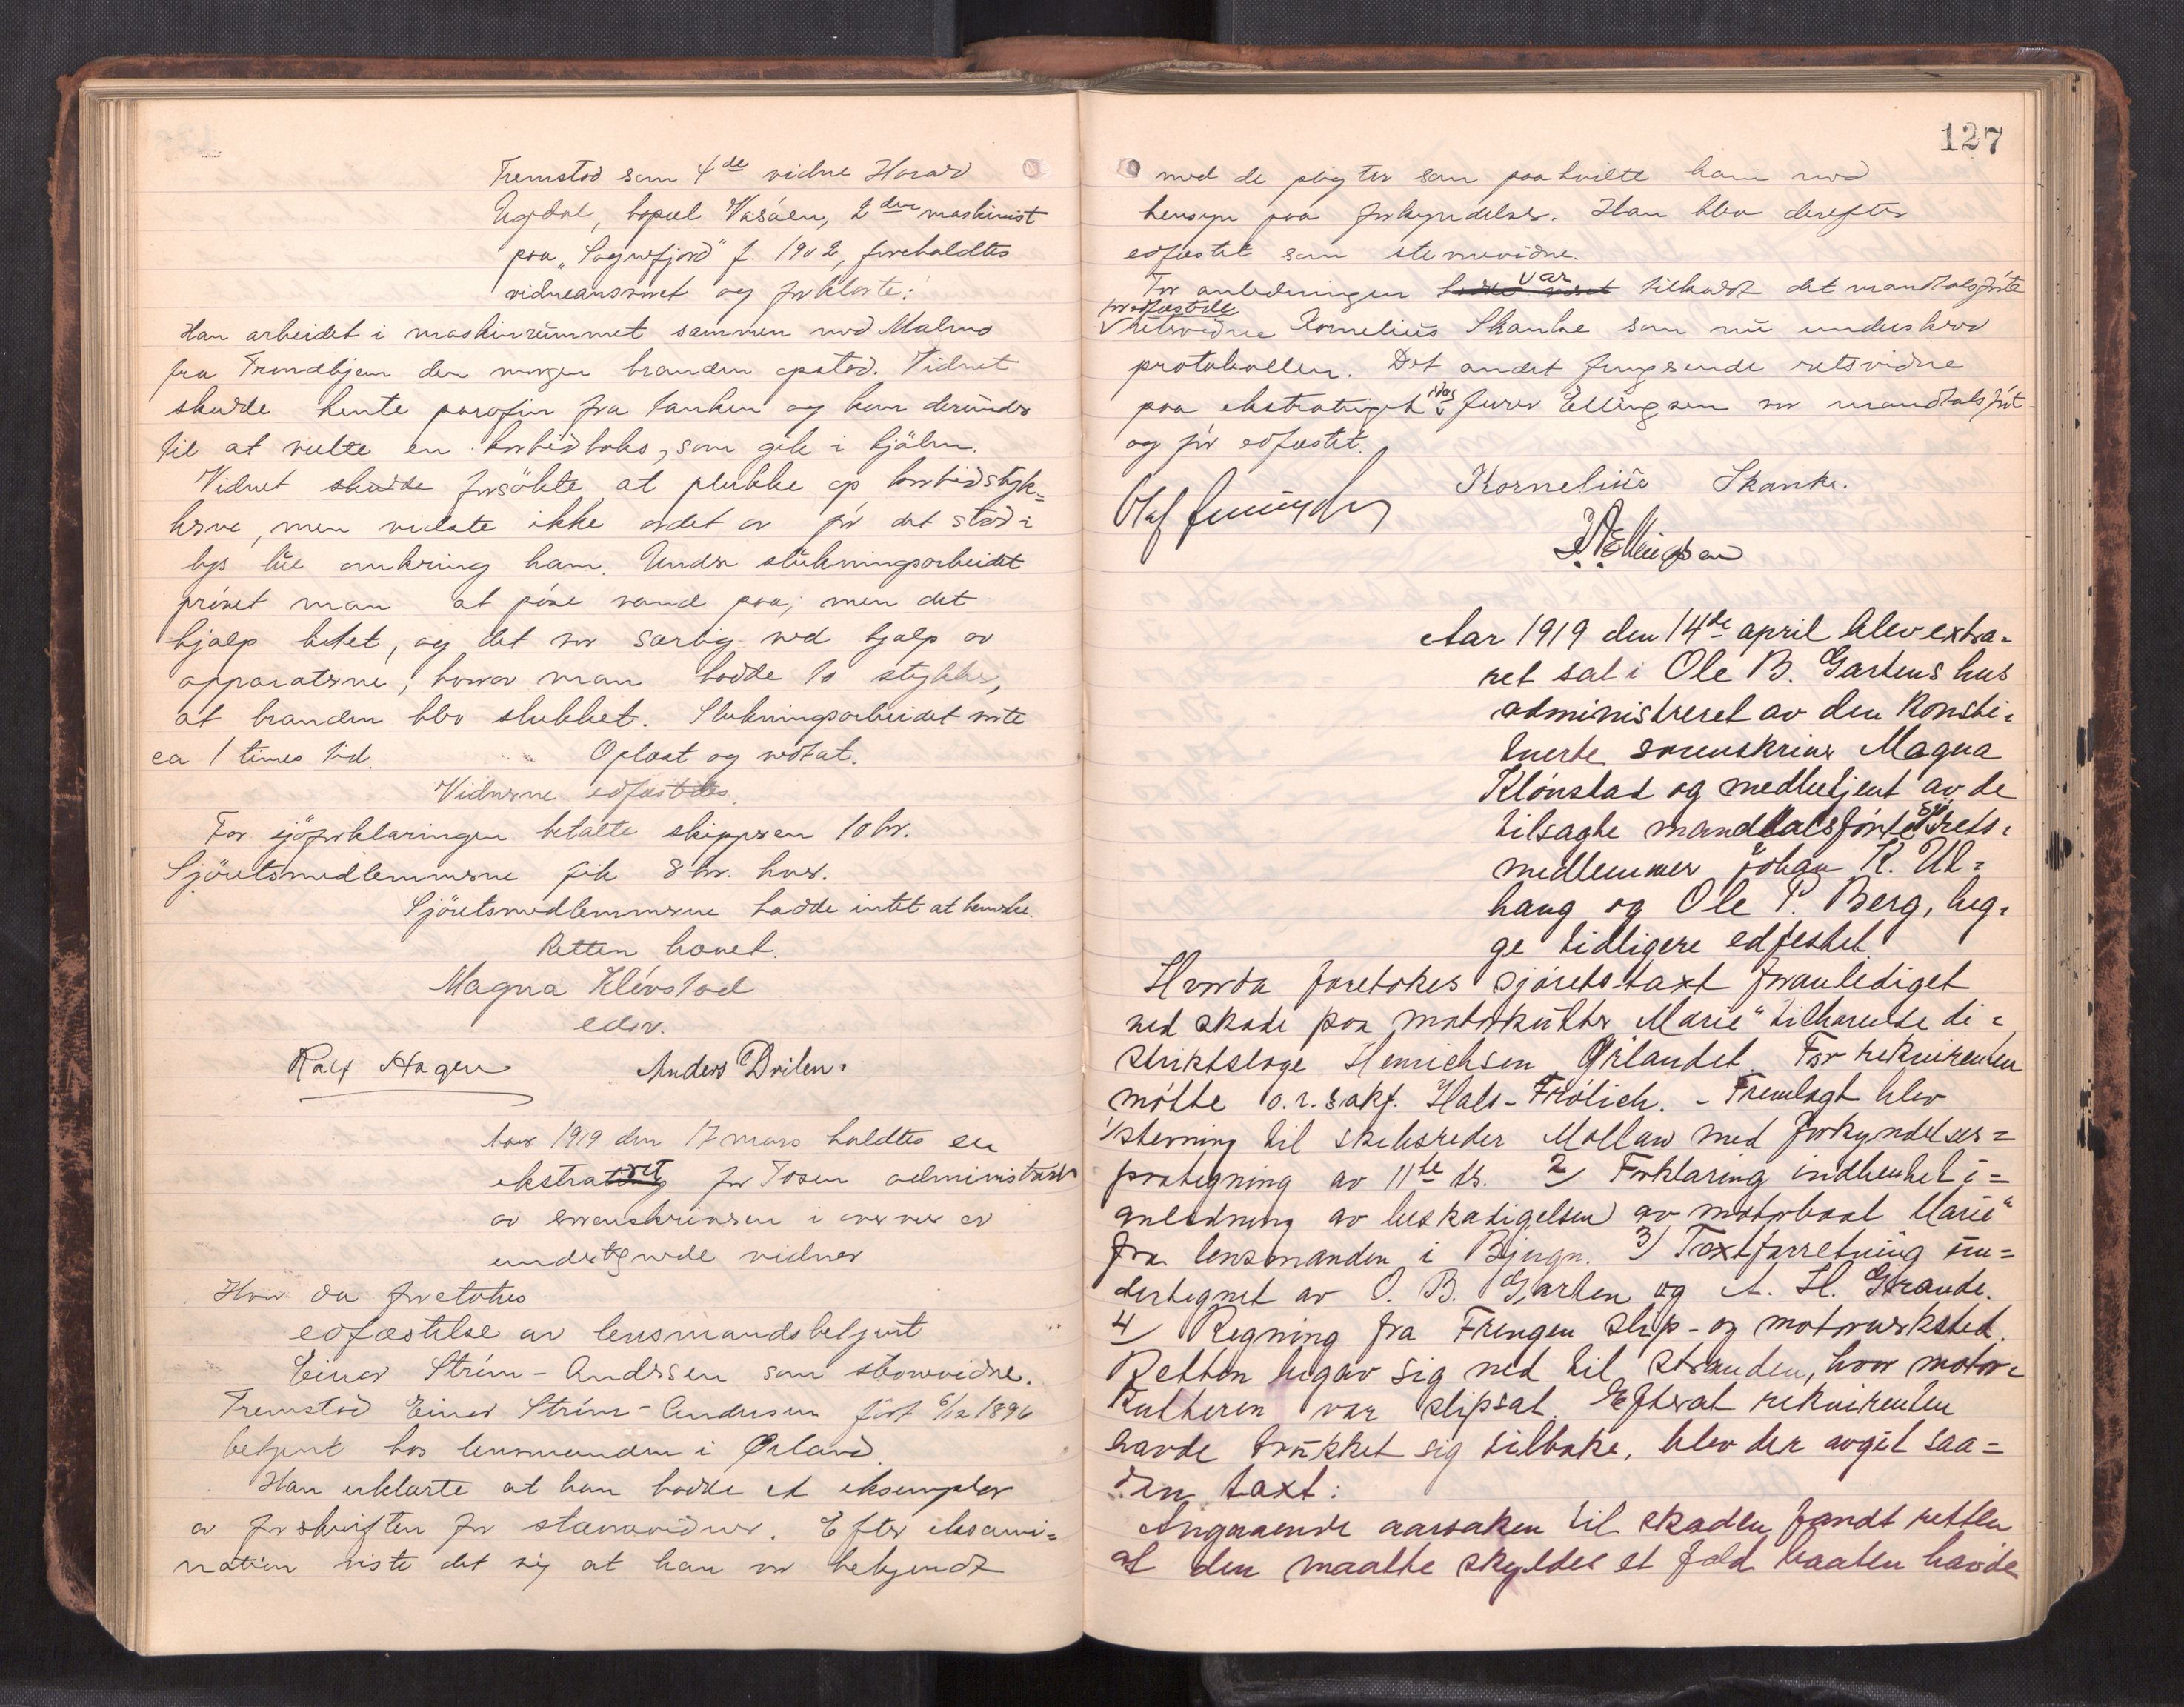 Fremstod som 4de vidne Harald
Ugdal, bopæl Vasåen, 2den maskinist
paa "Sognefjord" f. 1902, foreholdtes
vidneansvaret og forklarte:
Han arbeidet i maskinrummet sammen med Malmo
fra Trondhjem den morgen branden opstod. Vidnet
skulde hente parafin fra tanken og kom derunder
til at vælte en karbidboks, som gik i hjälm.
Vidnet skulde forsökte at plukke op karbidstyk=
kerne, men vidste ikke ordet av för det stod i
lys lue omkring ham. Under slukningsarbeidet
prövet man at pöse vand paa; men det
hjalp litet, og det var særlig ved hjælp av
apparaterne, hvorav man hadde 10 stykker,
at branden blev slukket. Slukningsarbeidet varte
ca 1 times tid. Oplæst og vedtat.
Vidnerne edfæstedes.
For sjöforklaringen betalte skipperen 10 kr.
Sjöretsmedlemmerne fik 8 kr. hver.
Sjöretsmedlemmerne hadde intet at bemerke.
Retten hævet.
Magna Klövstad
edsv.
Ralf Hagen Anders Drilen.
Aar 1919 den 17 mars holdtes en
ekstraret for Fosen administrert
av sorenskriveren i overvær av
undertegnede vidner
Hvor da foretokes
edfæstelse av lensmandsbetjent
Einar Ström-Andersen som stevnevidne.
Fremstod Einar Ström-Andersen födt 6/12 1896
betjent hos lensmanden i Ørland.
Han erklærte at han hadde et eksemplar
av forskriften for stævnevidner. Efter eksami=
nation viste det sig at han var bekjendt
127
med de pligter som paahvilte ham med
hensyn paa forkyndelser. Han blev derefter
edfæstet som stevnevidne.
For anledningen hadde været var tilkaldt det mandtalsförte
for edfæstede
retsvidne Kornelius Skanke som nu underskrev
protokollen. Det andet fungerende retsvidne
paa ekstratinget furer Ellingsen var mandtalsfört
og för edfæstet.
Kornelius Skanke.
Ellingsen
Aar 1919 den 14de april blev extra=
ret sat i Ole B. Gartens hus
administreret av den konsti=
tuerte sorenskriver Magna
Klönstad og medbetjent av de
tilsagte mandtalsförte sjörets=
medlemmer Johan K. Uk=
haug og Ole P. Berg, beg=
ge tidligere edfestet.
Hvorda foretokes sjörets-taxt foranlediget
ved skade paa motorkutter "Marie" tilhørende di=
striktslæge Henrichsen Ørlandet. For rekvirenten
mötte o.r.sakf. Hals-Frölich. - Fremlagt blev
1/ stevning til skibsreder Mollaw med forkyndelses=
paategning av 11te ds. 2/ Forklaring indhentet i=
anledning av beskadigelsen av motorbaat "Marie"
fra lensmanden i Bjugn. 3/ Taxtforretning un=
dertegnet av O. B. Garten og A. H. Grande.
4/ Regning fra Frengen slip- og motorverksted.
Retten begav sig ned til stranden, hvor motor=
kutteren var slipsat. Efterat rekvirenten
havde trukket sig tilbake, blev der avgit saa=
den taxt:
Angaaende aarsaken til skaden fandt retten
at den maatte skyldes et fald baaten havde